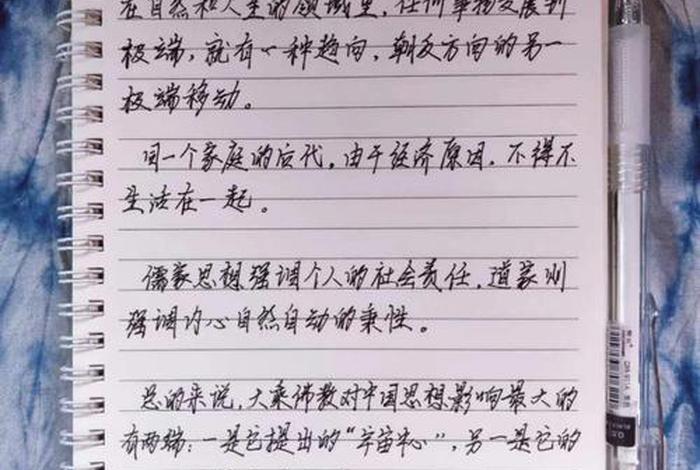 在自然和人生的领域里，任何事物发展到
极端，就有一种趋向，朝反方向的另一
极端移动。
同一个家庭的后代，由于经济原因，不得不
生活在一起。
儒家思想强调个人的社会责任，道家则
强调内心自然自动的秉性。
总的来说，大乘佛教对中国思想影响最大的
有两端：一是它提出的“宇宙心”，另一是它的